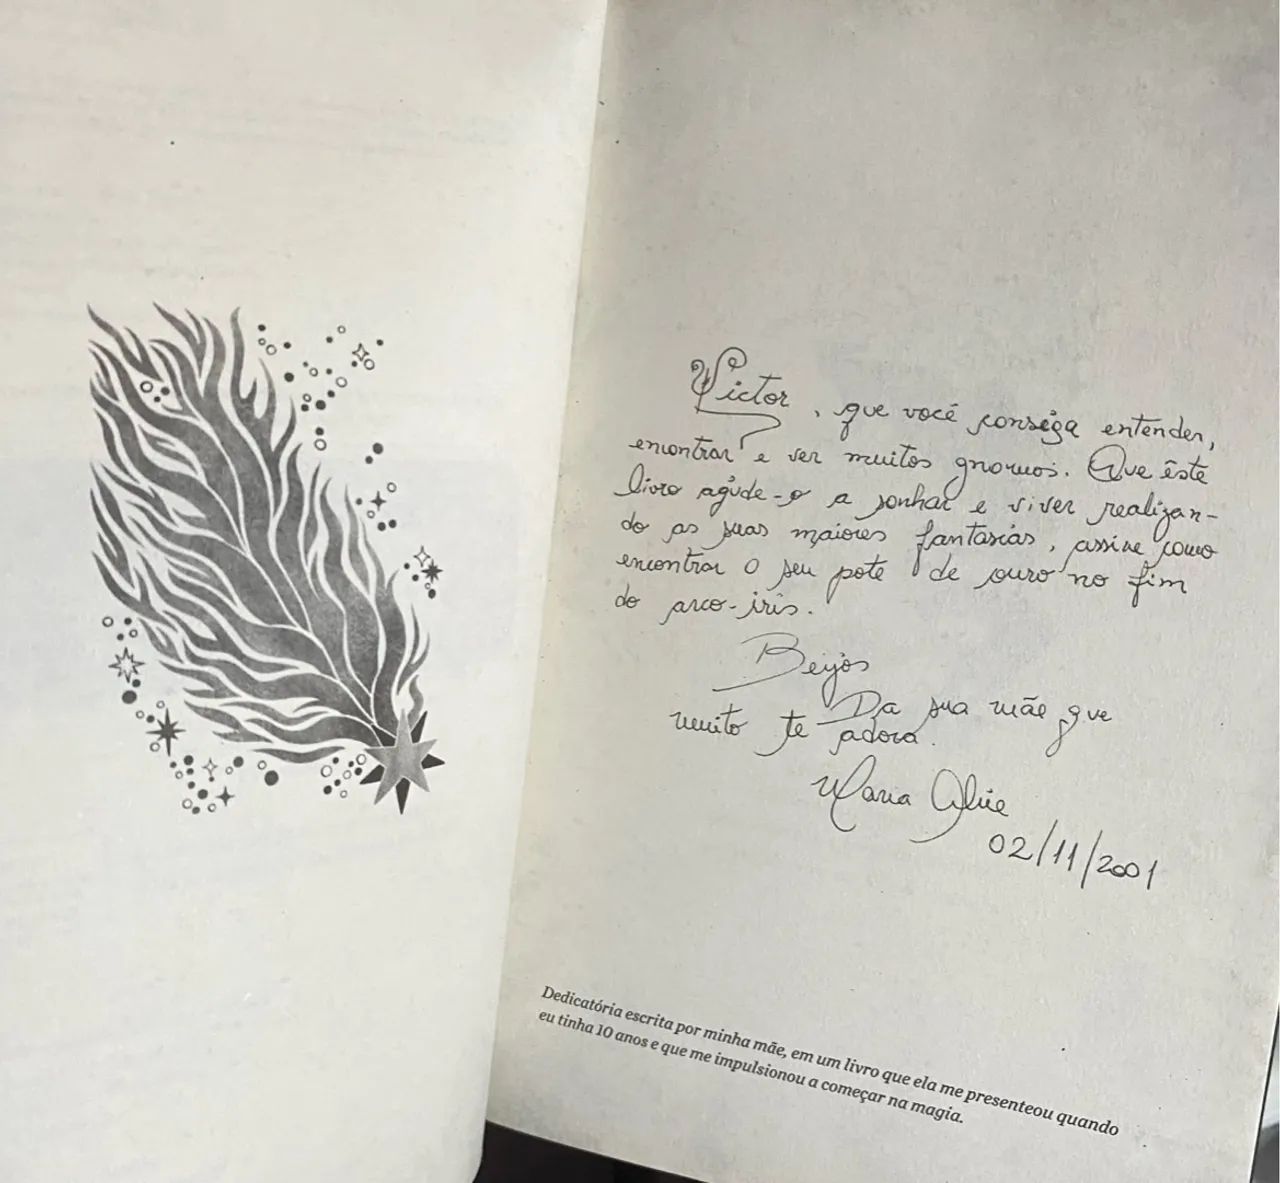 Victor, que você consiga entender,
encontrar e ver muitos gnomos. Que êste
livro ajude-o a sonhar e viver realizan-
do as suas maiores fantasias, assim como
encontrar o seu pote de ouro no fim
do arco-iris.
Beijos
Da sua mãe que
muito te adora.
Maria Alice
02/11/2001
Dedicatória escrita por minha mãe, em um livro que ela me presenteou quando
eu tinha 10 anos e que me impulsionou a começar na magia.